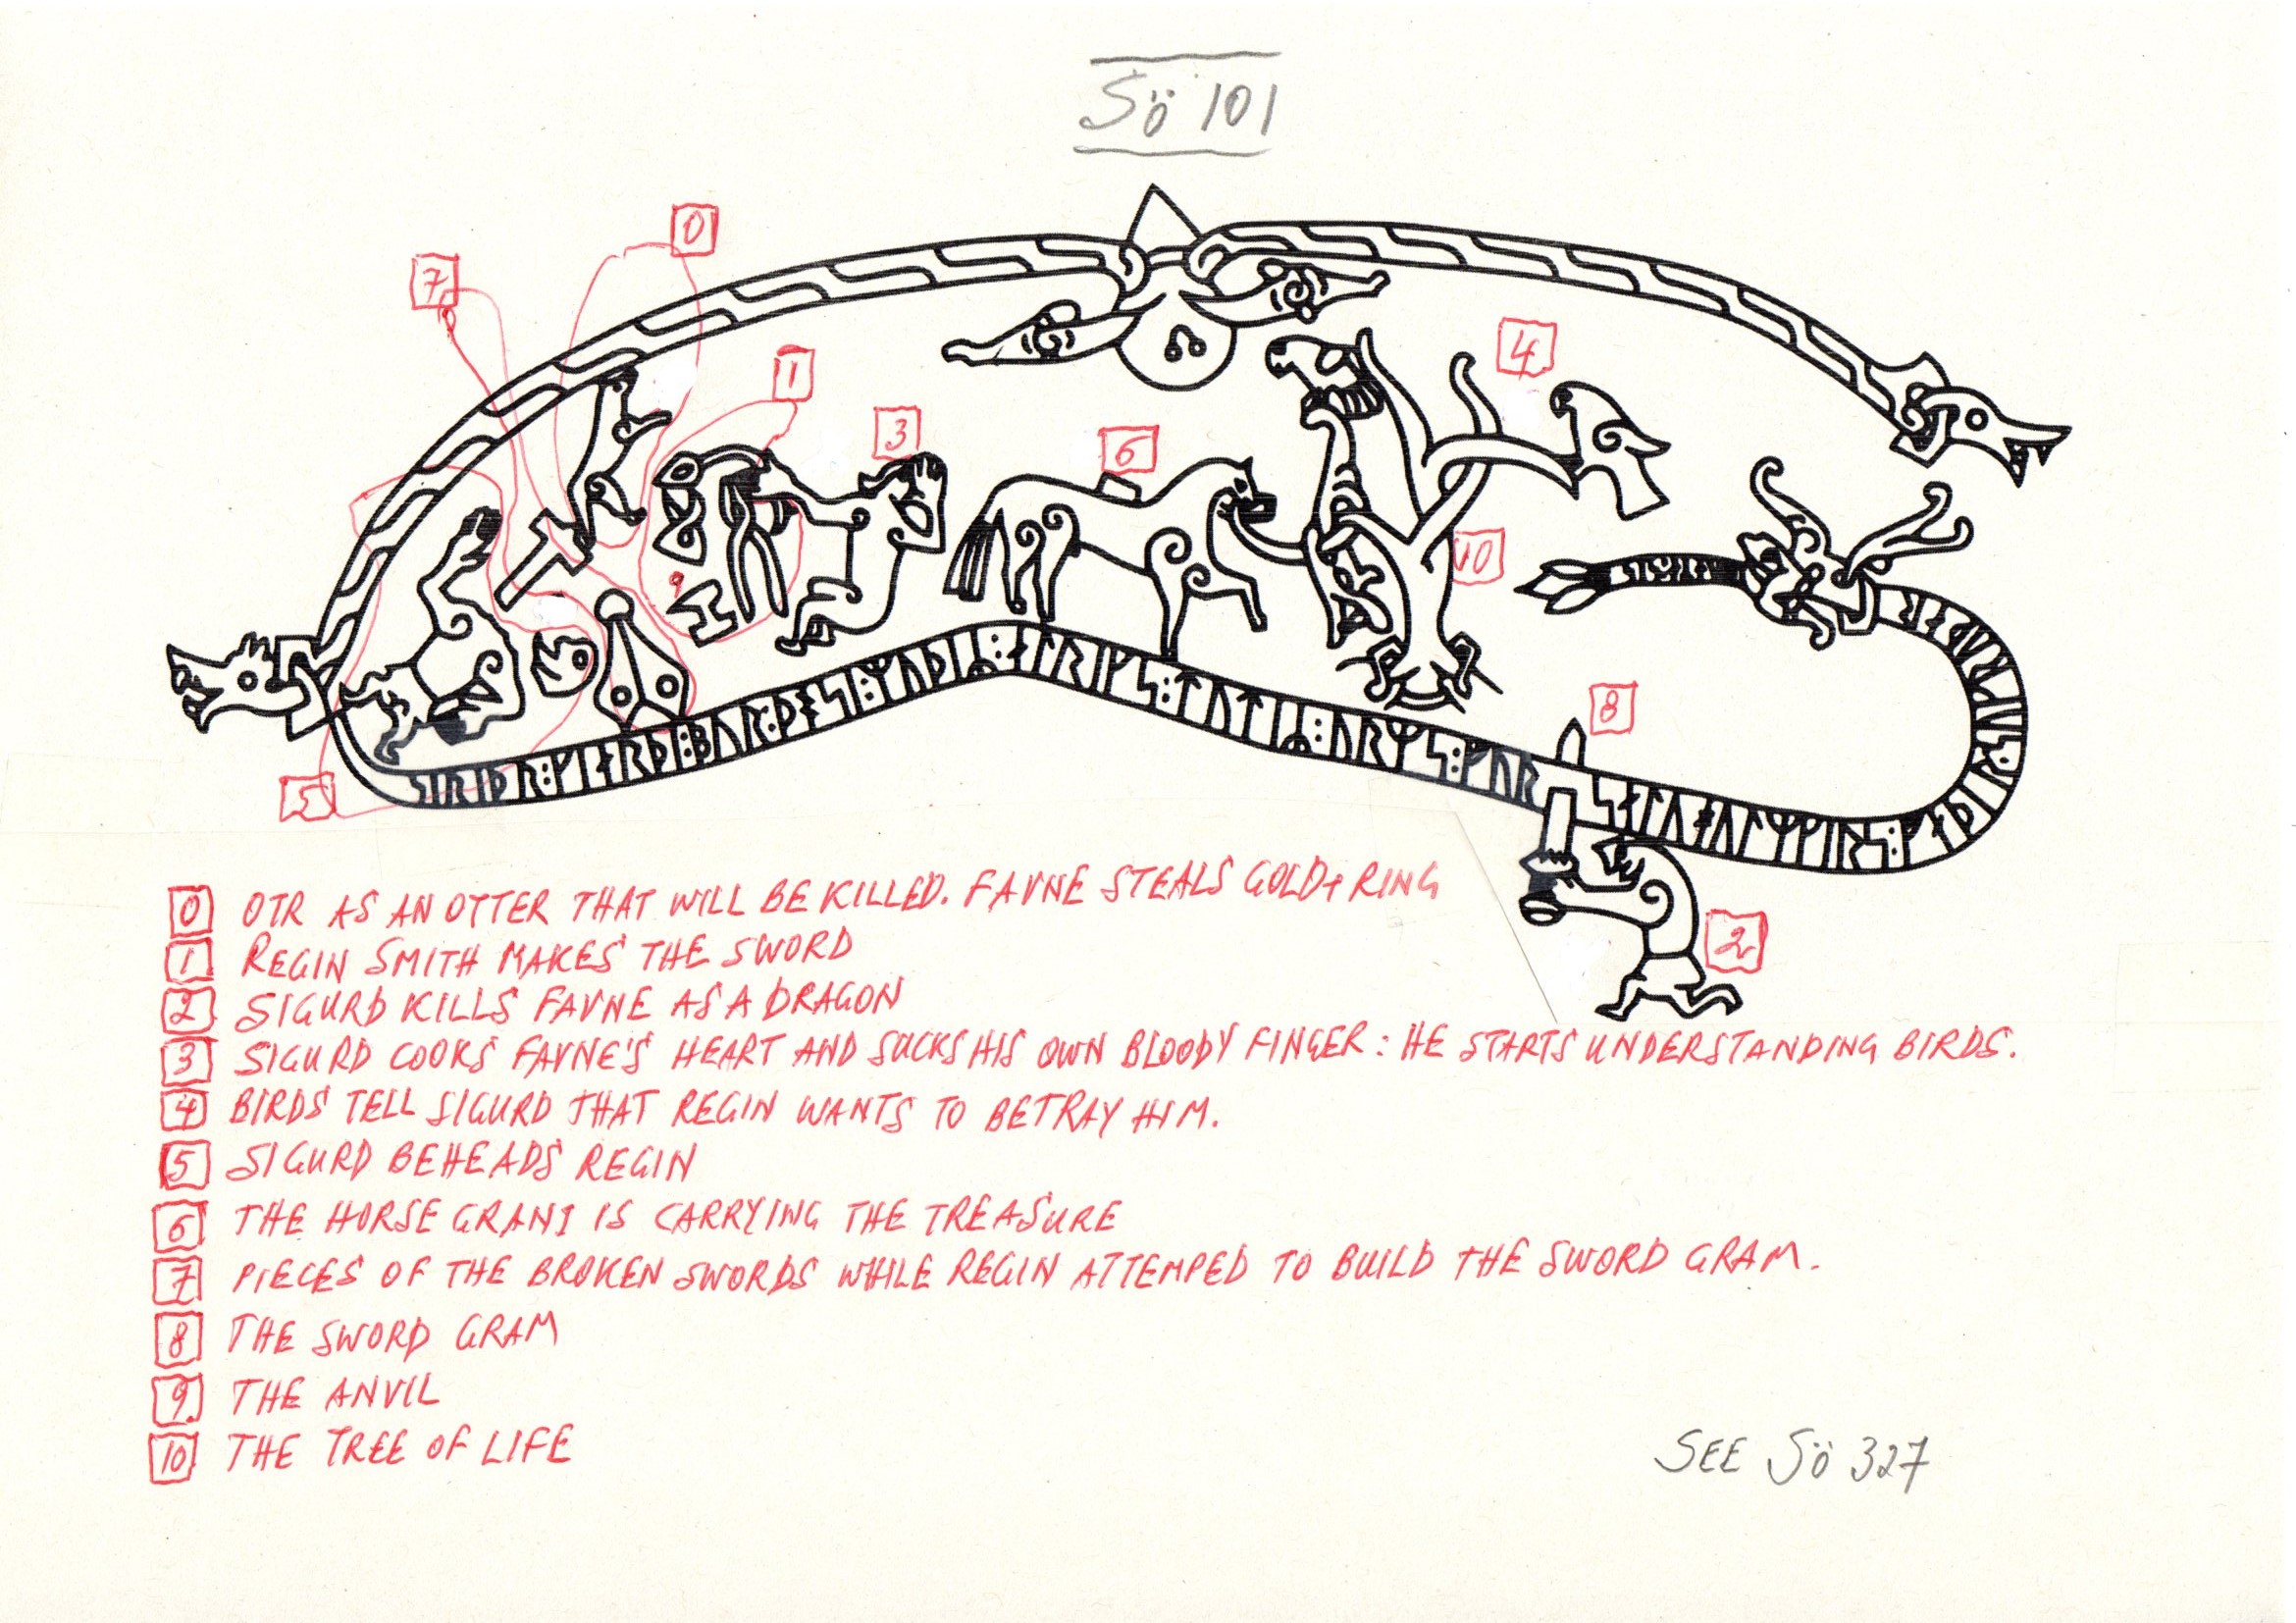 Sö 101
0
7
4
1
3
6
10
9
8
5
ᛋᛁᚱᛁᚦᚱ:ᚴᛁᛅᚱᚦᛁ:ᛒᚢᚱ:ᚦᚬᛋᛁ:ᛘᚢᚦᛁᛦ:ᛅᛚᚱᛁᚴᛋ:ᛏᚢᛏᛁᛦ:ᚢᚱᛘᛋ:ᚠᚢᚱ ᛋᛅᛚᚢ ᚼᚢᛚᛘᚴᛁᚱᛋ:
2
0 OTR AS AN OTTER THAT WILL BE KILLED. FAVNE STEALS GOLD+RING
1 REGIN SMITH MAKES THE SWORD
2 SIGURD KILLS FAVNE AS A DRAGON
3 SIGURD COOKS FAVNE'S HEART AND SUCKS HIS OWN BLOODY FINGER: HE STARTS UNDERSTANDING BIRDS.
4 BIRDS TELL SIGURD THAT REGIN WANTS TO BETRAY HIM.
5 SIGURD BEHEADS REGIN
6 THE HORSE GRANI IS CARRYING THE TREASURE
7 PIECES OF THE BROKEN SWORDS WHILE REGIN ATTEMPED TO BUILD THE SWORD GRAM.
8 THE SWORD GRAM
9 THE ANVIL
10 THE TREE OF LIFE
SEE Sö 327